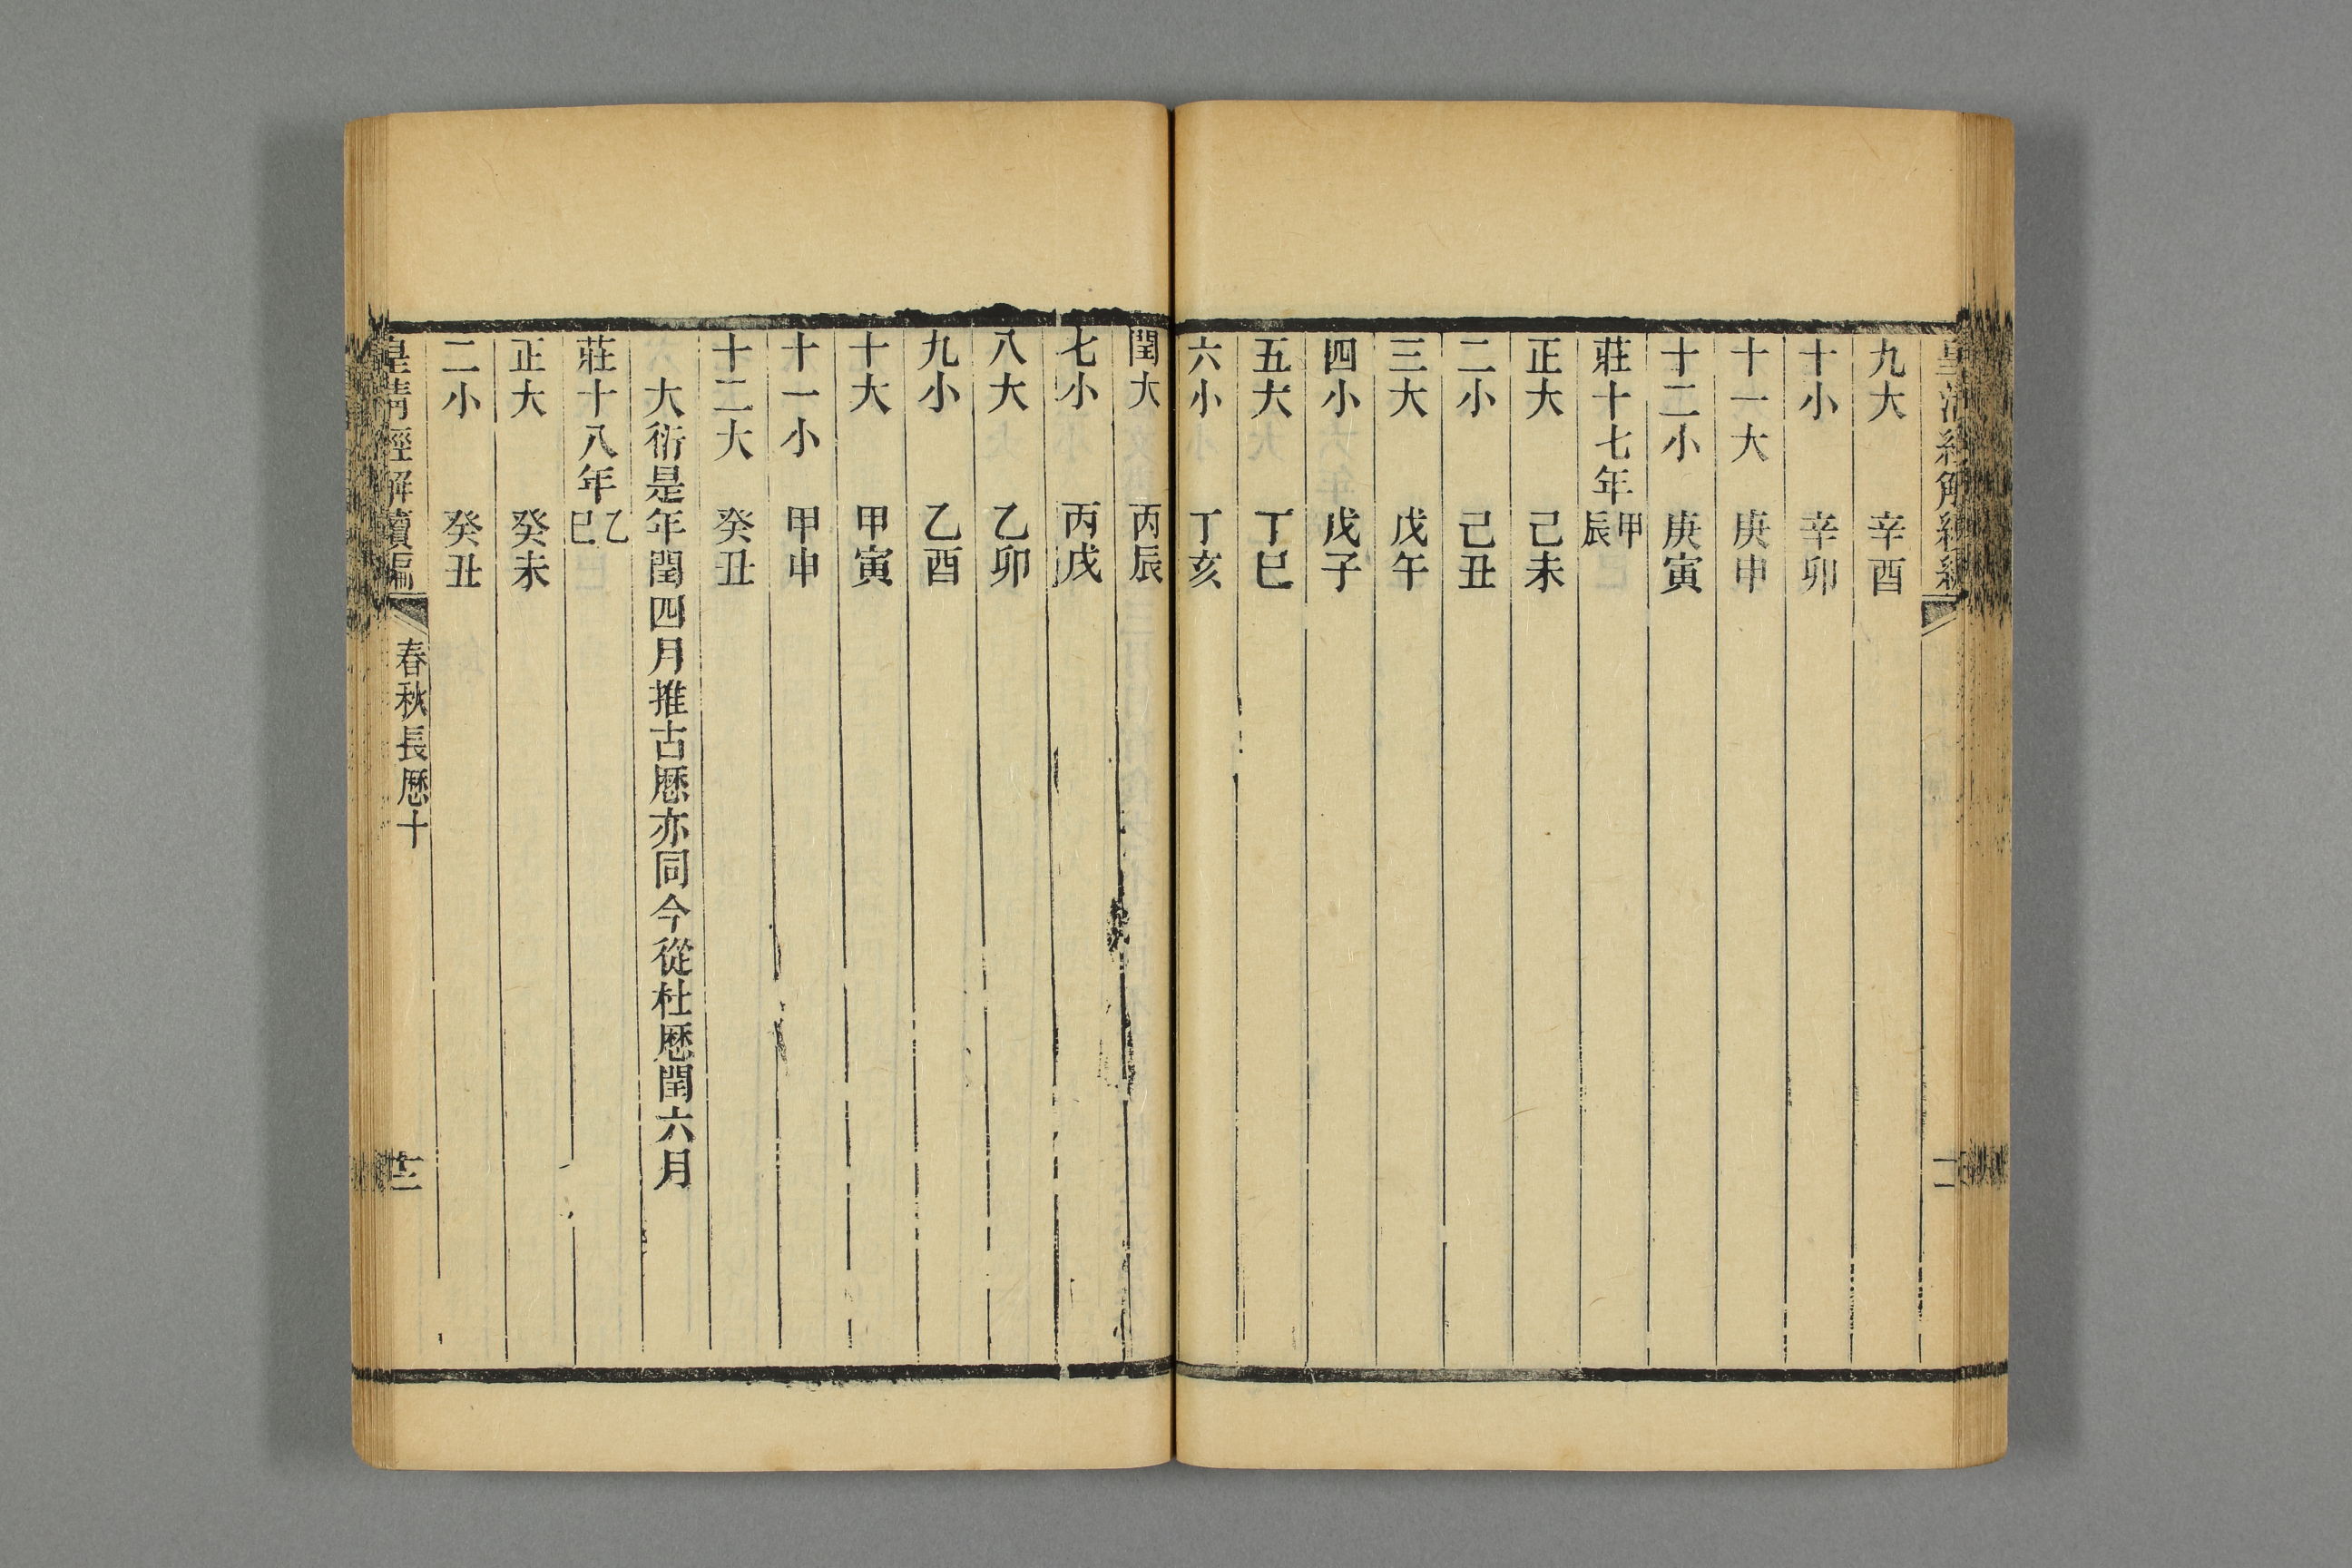 九大 辛酉
十小 辛卯
十一大 庚申
十二小 庚寅
莊十七年 甲辰
正大 己未
二小 己丑
三大 戊午
四小 戊子
五大 丁巳
六小 丁亥
閏大 丙辰
七小 丙戌
八大 乙卯
九小 乙酉
十大 甲寅
十一小 甲申
十二大 癸丑
大衍是年閏四月推古厯亦同今從杜厯閏六月
莊十八年 乙巳
正大 癸未
二小 癸丑
皇清經解續編 春秋長厯十